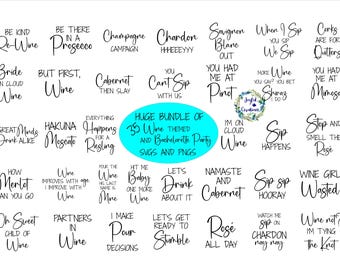 BE KIND
Re-Wine
BE THERE
IN A
Prosecco
Champagne
CAMPAIGN
Chardon
HHHEEEYYY
Sauvignon
BLANC
OUT
When I Sip
You Sip
We Sip
Corks
ARE FOR
Quitters
Bride
ON CLOUD
Wine
BUT FIRST,
Wine
Cabernet
THEN SLAY
You
Can't Sip
WITH US
YOU HAD
ME AT
Pinot
MORE Wine
YOU HAD
ME AT
Mimosa
GREAT Minds
DRINK ALIKE
HAKUNA
Moscato
EVERYTHING
Happens
FOR A
Riesling
HUGE BUNDLE OF
35 Wine THEMED
AND Bachelorette Party
SVGS AND PNGS
I'M ON
CLOUD
Wine
Sip
HAPPENS
Stop and
SMELL THE
Rosé
HOW
Merlot
CAN YOU GO
Wine
IMPROVES WITH AGE
I IMPROVE WITH
Wine
HIT ME
Baby
ONE MORE
Wine
LET'S
Drink
ABOUT IT
NAMASTE
AND
Cabernet
Sip sip
HOORAY
WINE GIRL
Wasted
Oh Sweet
CHILD OF
Wine
PARTNERS
IN
Wine
I MAKE
Pour
DECISIONS
LET'S GET
READY TO
Stumble
Rosé
ALL DAY
WATCH ME
SIP ON
CHARDON
nay nay
Wine not?
I'M TYING
the Knot